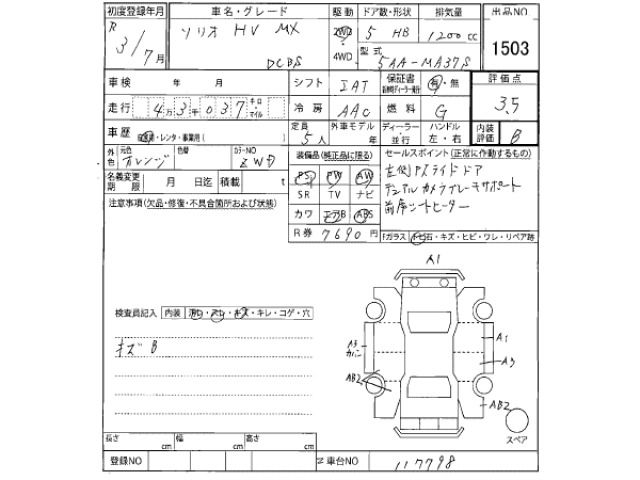 初度登録年月 車名・グレード 駆動 ドア数・形状 排気量 出品NO
R 3/7月 ソリオ HV MX DCBS 2WD 4WD 5 HB 1200cc 1503
型式 5AA-MA37S
車検 年 月 シフト IAT 保証書 有・無 評価点
走行 4万3千037 キロ マイル 冷房 AAC 燃料 G 3.5
車歴 自家用・レンタ・事業用( ) 定員 5人 外車モデル 年 ディーラー・並行 ハンドル 左・右 内装評価 B
外色 元色 オレンジ 色替 カラーNO ZWD 装備品(純正品に限る) セールスポイント(正常に作動するもの)
名義変更期限 月 日迄 積載 t PS PW AW 左側Pスライドドア
SR TV ナビ デュアルカメラブレーキサポート
注意事項(欠品・修復・不具合箇所および状態) カワ エアB ABS 前席シートヒーター
R券 7690円 Fガラス トビ石・キズ・ヒビ・ワレ・リペア跡
A1
検査員記入 内装 汚レ・スレ・キズ・キレ・コゲ・穴
キズB
A3
A1
A3
AB2
AB2
スペア
長さ cm 幅 cm 高さ cm
登録NO 車台NO 117798